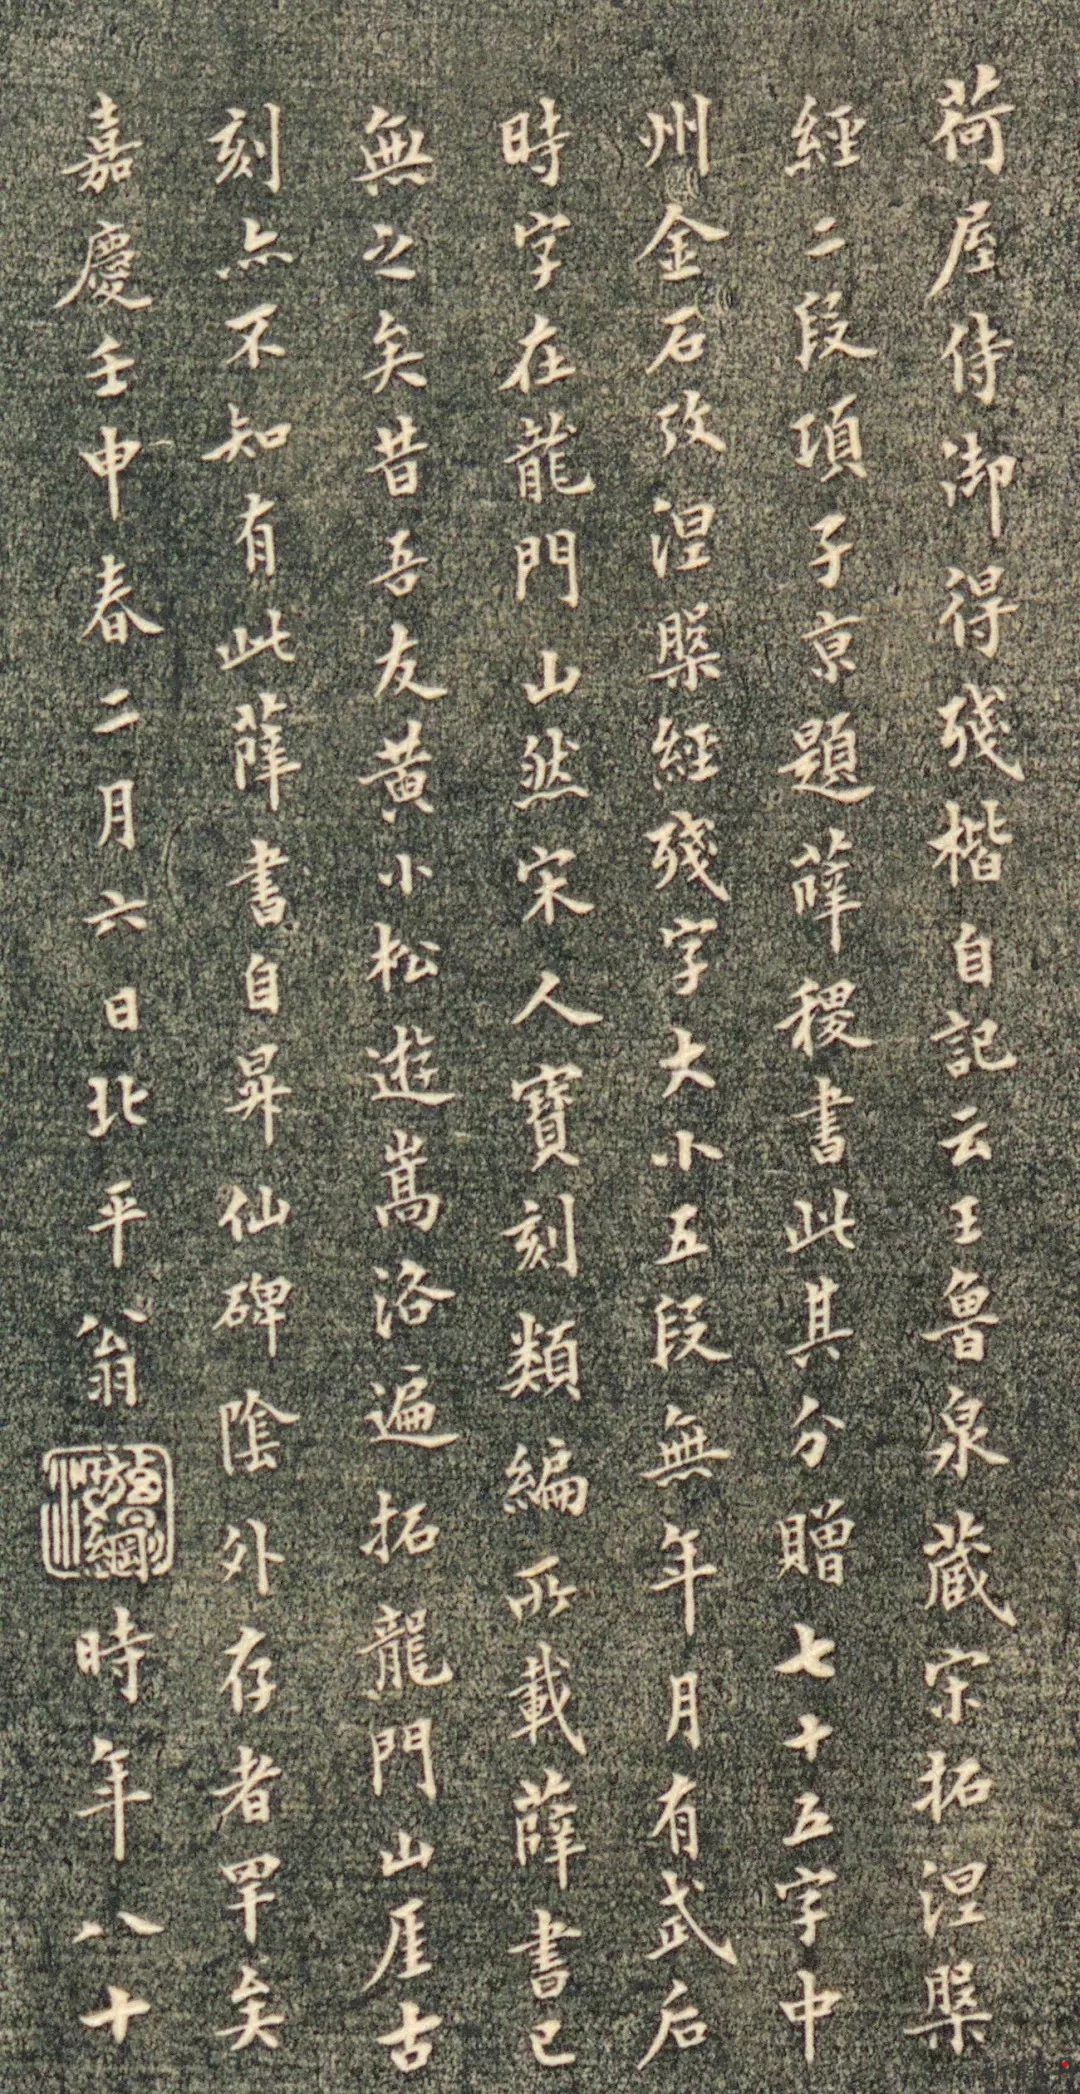 荷屋侍御得殘楷自記云王魯泉蔵宋拓涅槃
經二段項子京題薛稷書此其分贈七十五字中
州金石攷涅槃經殘字大小五段無年月有武后
時字在龍門山然宋人寶刻類編所載薛書已
無之矣昔吾友黄小松遊嵩洛遍拓龍門山厓古
刻亦不知有此薛書自昇仙碑陰外存者罕矣
嘉慶壬申春二月六日北平翁
時年八十